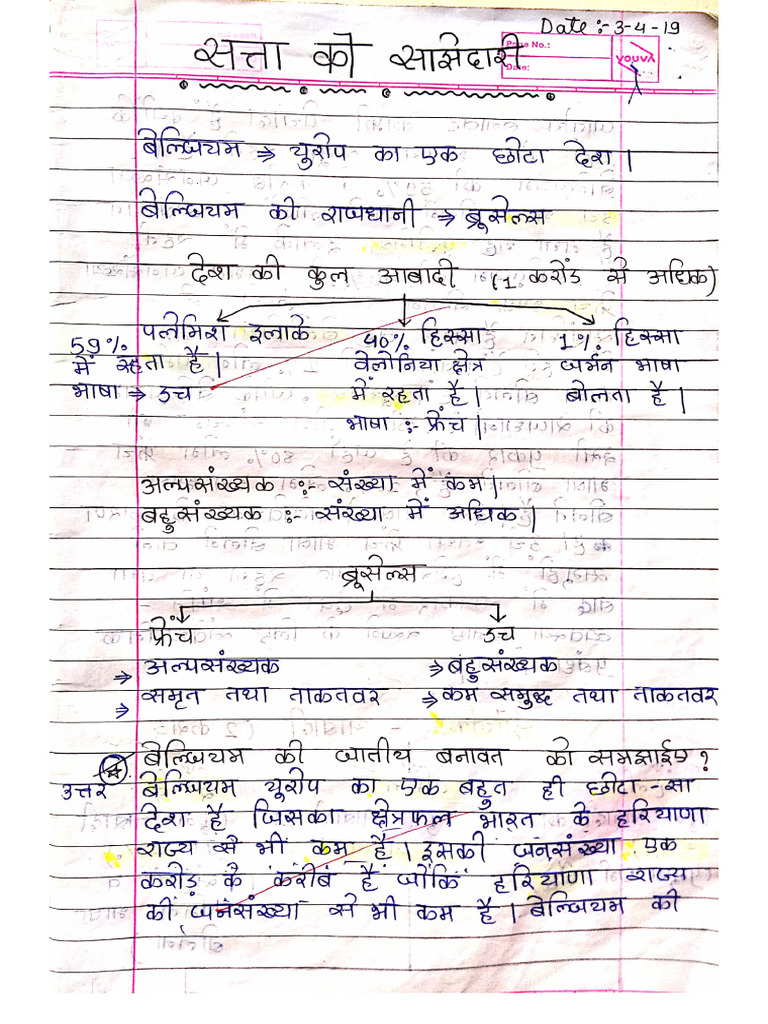 Date :- 3-4-19
सत्ता की साझेदारी
Page No.:
Date:
youva
बेल्जियम ⇒ युरोप का एक छोटा देश |
बेल्जियम की राजधानी ⇒ ब्रूसेल्स
देश की कुल आबादी (1 करोड से अधिक)
59% फ्लेमिश इलाके
में रहता है |
भाषा ⇒ डच
40% हिस्सा
वेलोनिया क्षेत्र
में रहता है |
भाषा :- फ्रेंच |
1% हिस्सा
जर्मन भाषा
बोलता है |
अल्पसंख्यक :- संख्या में कम |
बहुसंख्यक :- संख्या में अधिक |
ब्रूसेल्स
फ्रेंच
⇒ अल्पसंख्यक
⇒ समृत तथा ताकतवर
डच
⇒ बहुसंख्यक
⇒ कम समृद्ध तथा ताकतवर
बेल्जियम की जातीय बनावत को समझाईए ?
उत्तर बेल्जियम युरोप का एक बहुत ही छोटा-सा
देश है जिसका क्षेत्रफल भारत के हरियाणा
राज्य से भी कम है | इसकी जनसंख्या एक
करोड़ के करीब है जोकि हरियाणा राज्य
की जनसंख्या से भी कम है | बेल्जियम की